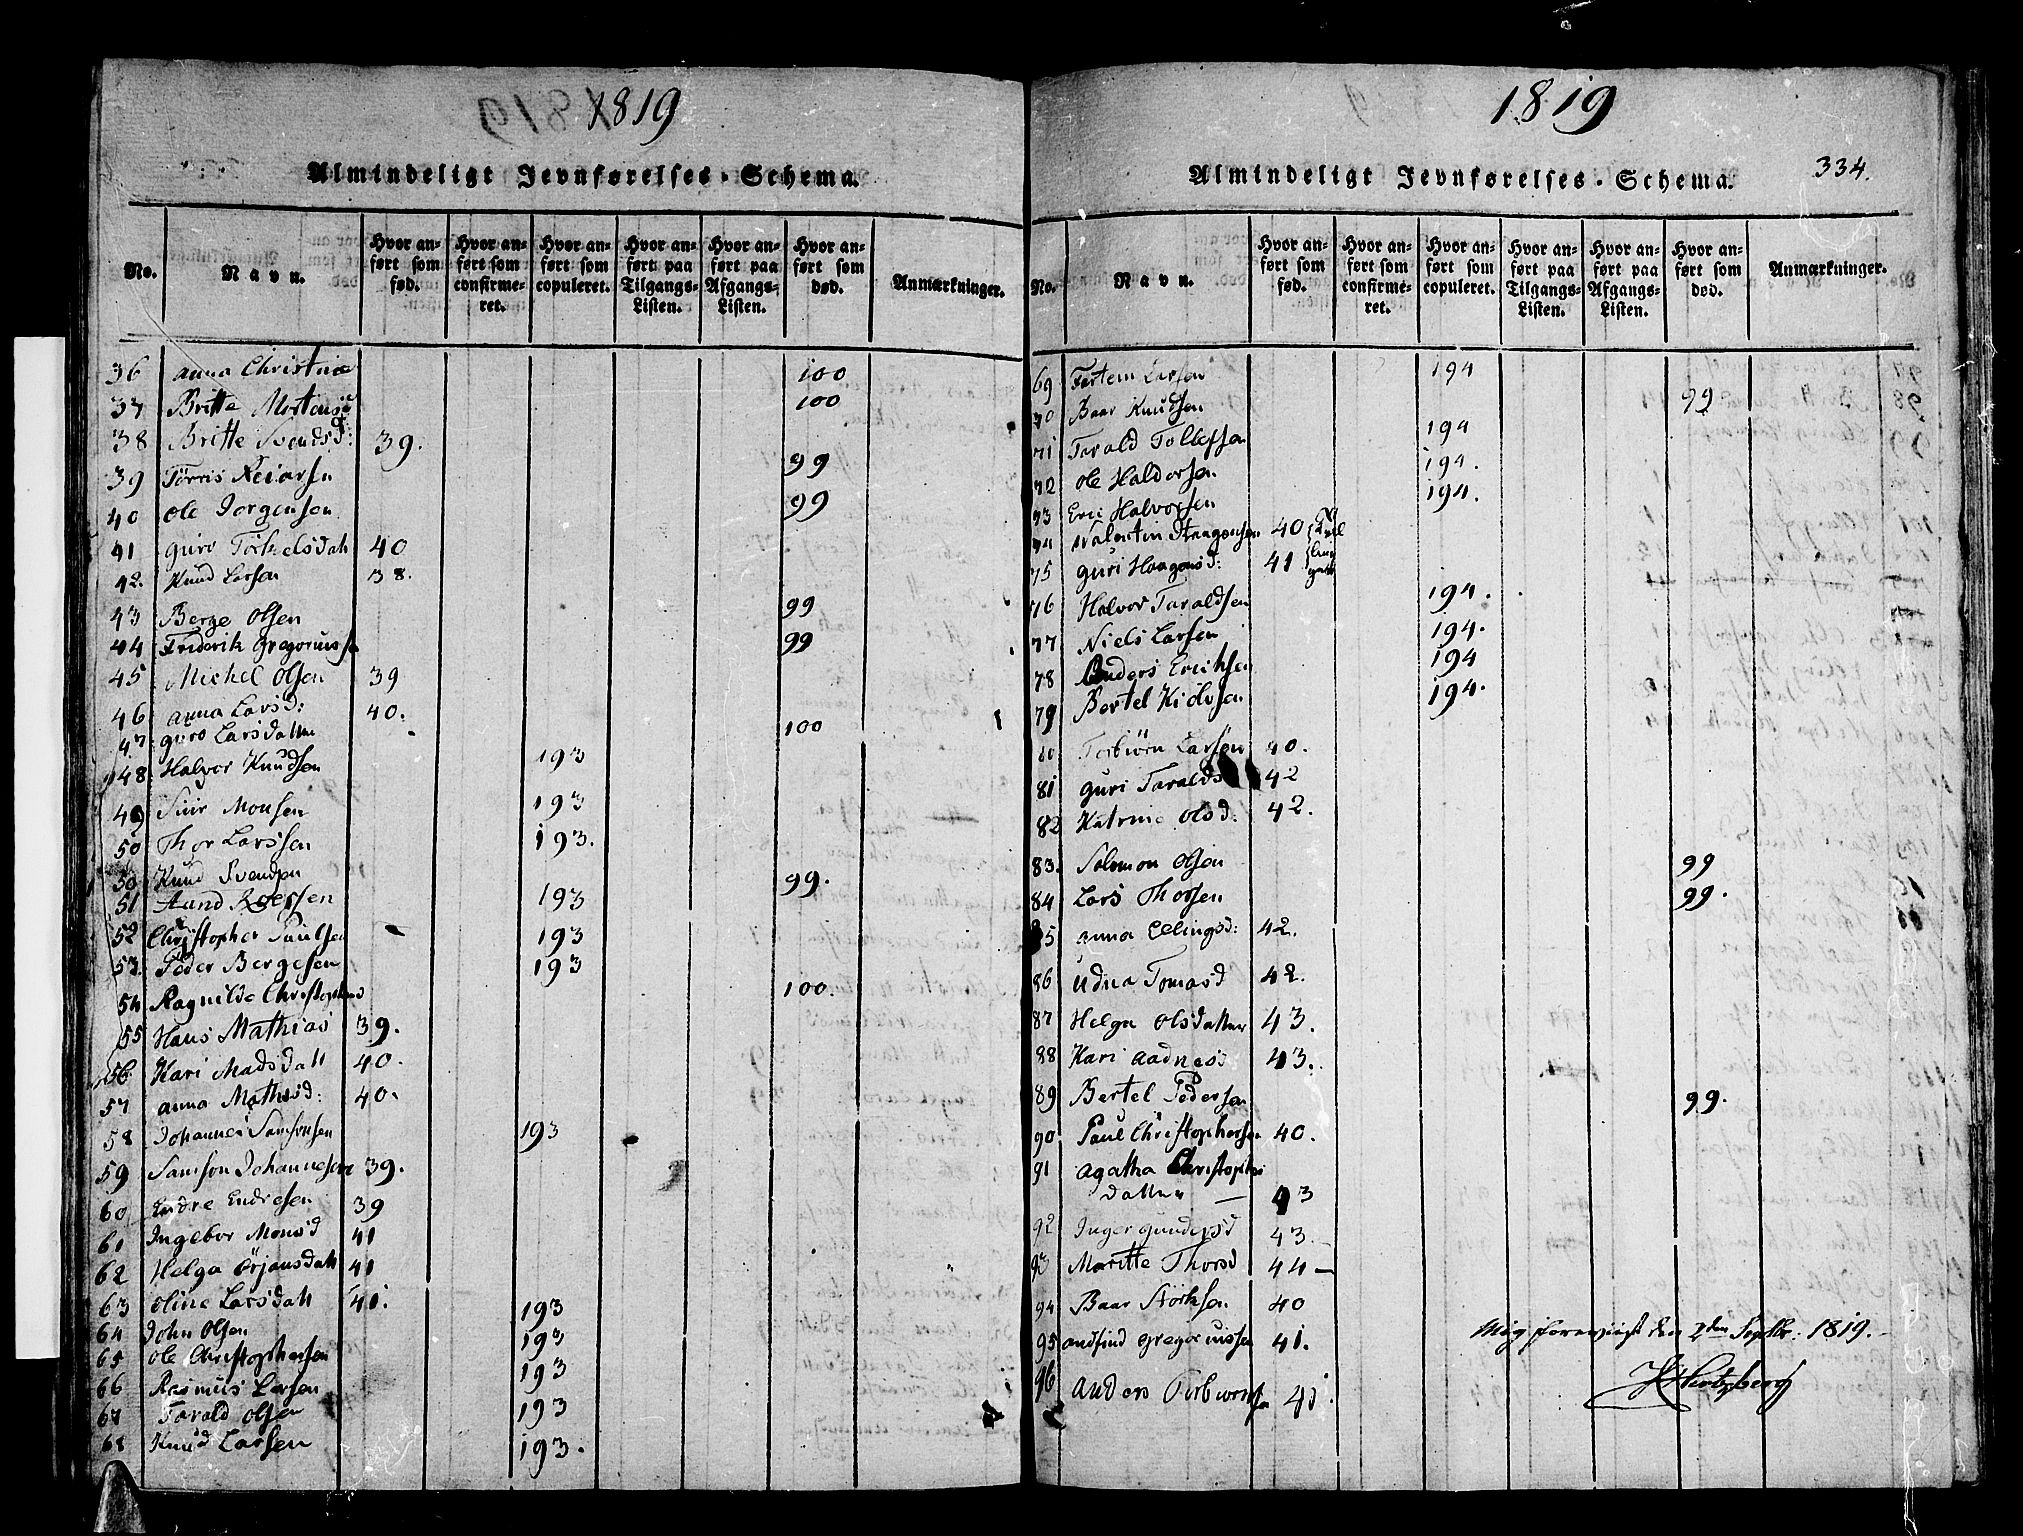 1819
Almindeligt Jevnførelses-Schema.
No. Navn. Hvor anført som fød. Hvor anført som confirmeret. Hvor anført som copuleret. Hvor anført paa Tilgangs-Listen. Hvor anført paa Afgangs-Listen. Hvor anført som død. Anmærkninger.
36 Anna Christine 100
37 Britte Mortensd 100
38 Britte Svendsd: 39.
39 Törris Reiarsen 99
40 Ole Jorgensen 99
41 Guro Törkelsdatt 40
42. Knud Larsen 38.
43 Berge Olsen 99
44 Friderik Gregoriussen 99
45 Michel Olsen 39
46 Anna Larsd: 40.
47 Guro Larsdatter 100
48 Halvor Knudsen 193
49 Siur Monsen 193
50 Thor Larssen 193.
50 Knud Svendsen 99.
51 Aand Roessen 193
52 Christopher Paulsen 193
53. Peder Bergesen 193
54 Ragnilde Christophersd 100.
55 Hans Mathias 39.
56 Kari Madsdatt 40.
57 Anna Mathisd: 40.
58 Johannes Samsonsen 193
59 Samson Johannesen 39.
60 Endre Endresen 39
61 Ingebor Monsd 41
62 Helga Örjansdatt 41
63 Oline Larsdatt 41.
64 John Olsen 193
65 Ole Christophersen 193
66 Rasmus Larsen 193
67 Tarald Olsen 193
68 Knud Larsen 193.
1819
334.
Almindeligt Jevnførelses-Schema.
No. Navn. Hvor anført som fød. Hvor anført som confirmeret. Hvor anført som copuleret. Hvor anført paa Tilgangs-Listen. Hvor anført paa Afgangs-Listen. Hvor anført som død. Anmærkninger.
69 Tostein Larsen 194
70 Baar Knudsen 99
71 Tarald Tollefsen 194
72 Ole Haldorsen 194.
73 Eric Halvorsen 194.
74 Valentin Haagensen 40
75 Guri Haagensd: 41
76 Halvor Taraldsen 194.
77 Niels Larsen 194.
78 Anders Erichsen 194
79 Bertel Kiölvsen 194.
80 Torbiörn Larsen 40.
81 Guri Taralds 42
82 Katrine Olsd: 42.
83. Salomon Olsen 99
84 Lars Thorsen 99.
85 Anna Ellingsd: 42.
86 Udna Tomasd 42.
87 Helga Olsdatter 43.
88 Kari Aadnesd 43.
89 Bertel Pedersen 99.
90 Paul Christophersen 40.
91 Agatha Christopher
datter — 43
92 Inger Gundersd 43
93 Maritte Thorsd 44 —
94 Baar Störksen 40
95 Ondfind Gregoriussen 41.
96 Anders Torbiörnsen 41.
Mig foreviist den 2den Septbr: 1819.
Hertzberg